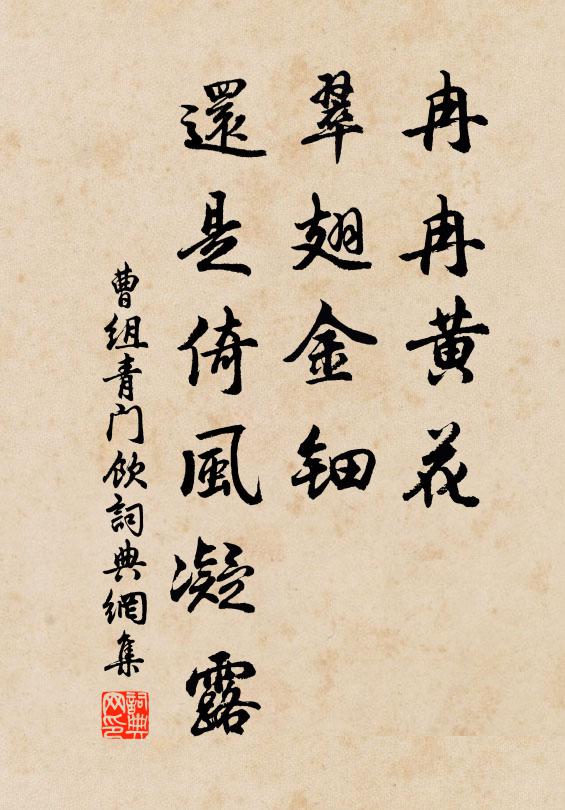 冉冉黄花
翠翅金鈿
還是倚風凝露
曹組青門飲詞典網集
詞典网印